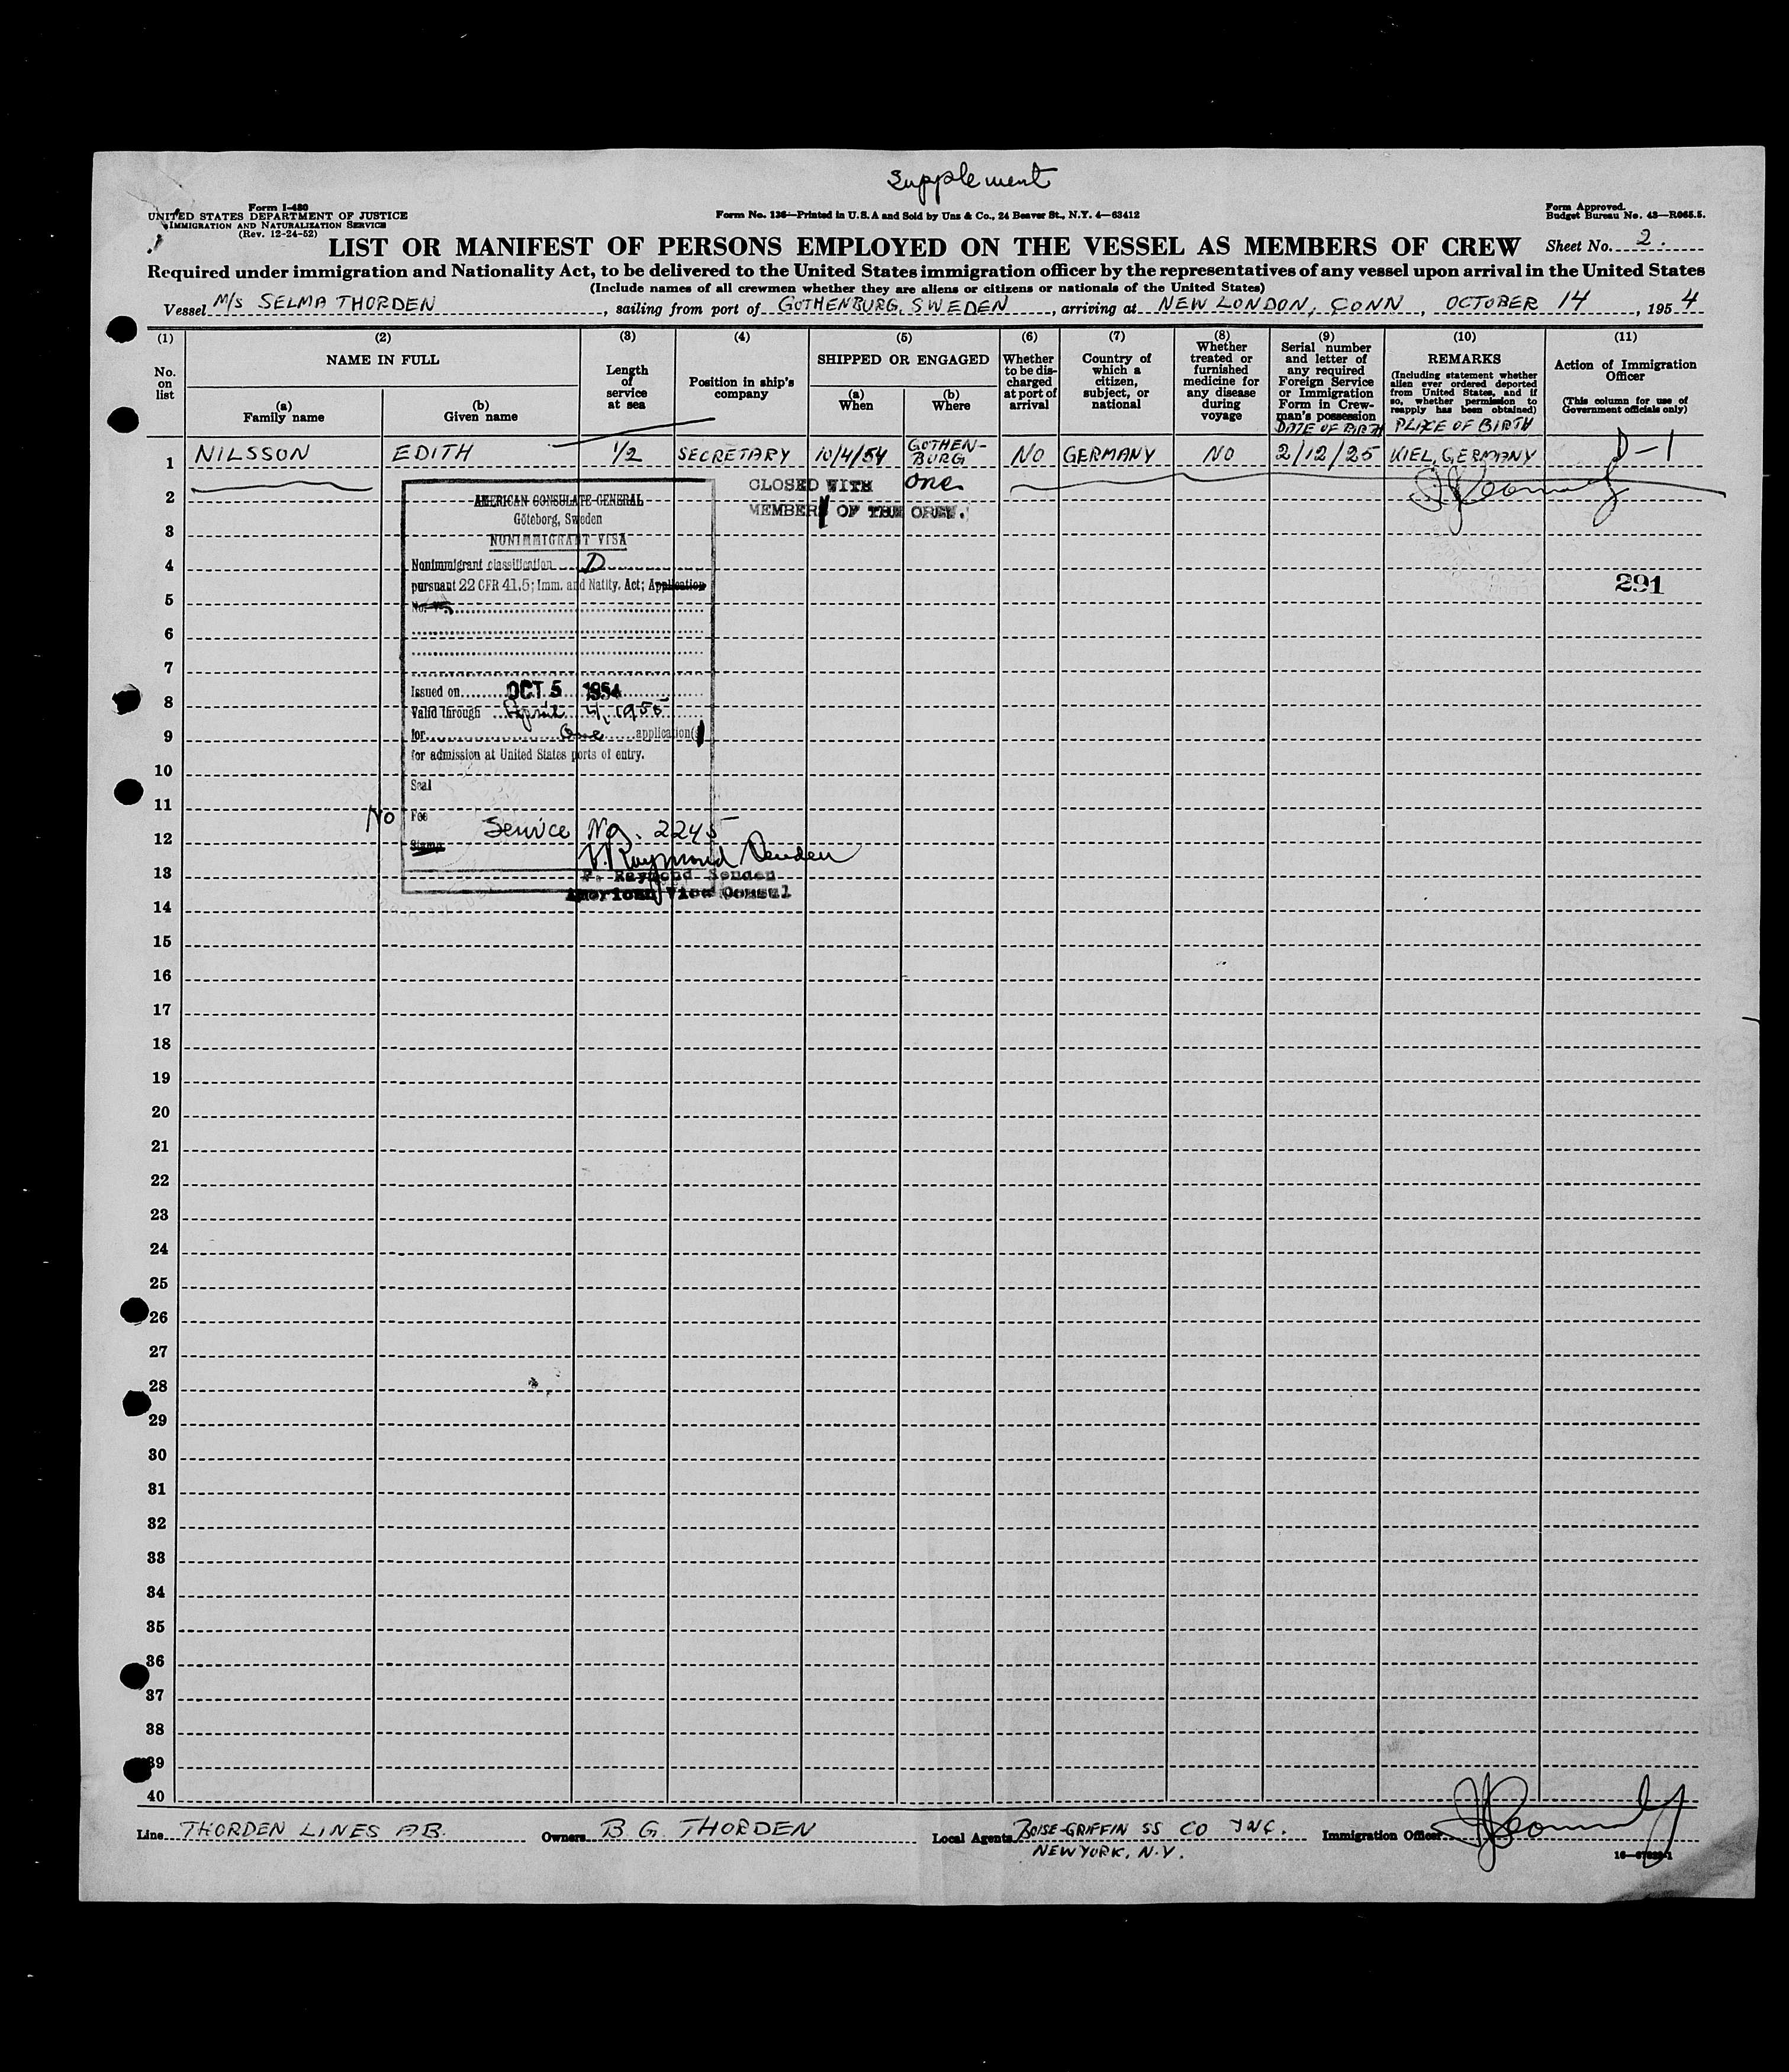 Supplement
Form I-480
UNITED STATES DEPARTMENT OF JUSTICE
IMMIGRATION AND NATURALIZATION SERVICE
(Rev. 12-24-52)
Form No. 136—Printed in U.S.A and Sold by Unz & Co., 24 Beaver St., N.Y. 4—63412
Form Approved.
Budget Bureau No. 43—R065.5.
LIST OR MANIFEST OF PERSONS EMPLOYED ON THE VESSEL AS MEMBERS OF CREW
Sheet No. 2.
Required under immigration and Nationality Act, to be delivered to the United States immigration officer by the representatives of any vessel upon arrival in the United States
(Include names of all crewmen whether they are aliens or citizens or nationals of the United States)
Vessel M/s SELMA THORDEN, sailing from port of GOTHENBURG, SWEDEN, arriving at NEW LONDON, CONN, OCTOBER 14, 1954
(1) (2) (3) (4) (5) (6) (7) (8) (9) (10) (11)
No. on list
NAME IN FULL
(a) Family name
(b) Given name
Length of service at sea
Position in ship's company
SHIPPED OR ENGAGED
(a) When
(b) Where
Whether to be discharged at port of arrival
Country of which a citizen, subject, or national
Whether treated or furnished medicine for any disease during voyage
Serial number and letter of any required Foreign Service or Immigration Form in Crewman's possession
DATE OF BIRTH
REMARKS
(Including statement whether alien ever ordered deported from United States, and if so, whether permission to reapply has been obtained)
PLACE OF BIRTH
Action of Immigration Officer
(This column for use of Government officials only)
1 NILSSON EDITH 1/2 SECRETARY 10/4/54 GOTHEN-BURG NO GERMANY NO 2/12/25 KIEL, GERMANY D-1
CLOSED WITH one
MEMBER OF THE CREW.
AMERICAN CONSULATE GENERAL
Göteborg, Sweden
NONIMMIGRANT VISA
Nonimmigrant classification D
pursuant 22 CFR 41.5; Imm. and Natity. Act; Application
No. V.
Issued on OCT 5 1954
Valid through April 4, 1955
for One application(s)
for admission at United States ports of entry.
Seal
No Fee
Stamp
Service No. 2245
V. Raymond Senden
American Vice Consul
291
2
3
4
5
6
7
8
9
10
11
12
13
14
15
16
17
18
19
20
21
22
23
24
25
26
27
28
29
30
31
32
33
34
35
36
37
38
39
40
Line THORDEN LINES AB.
Owners B G. THORDEN
Local Agents BOISE-GRIFFIN SS CO INC.
NEW YORK, N.Y.
Immigration Officer